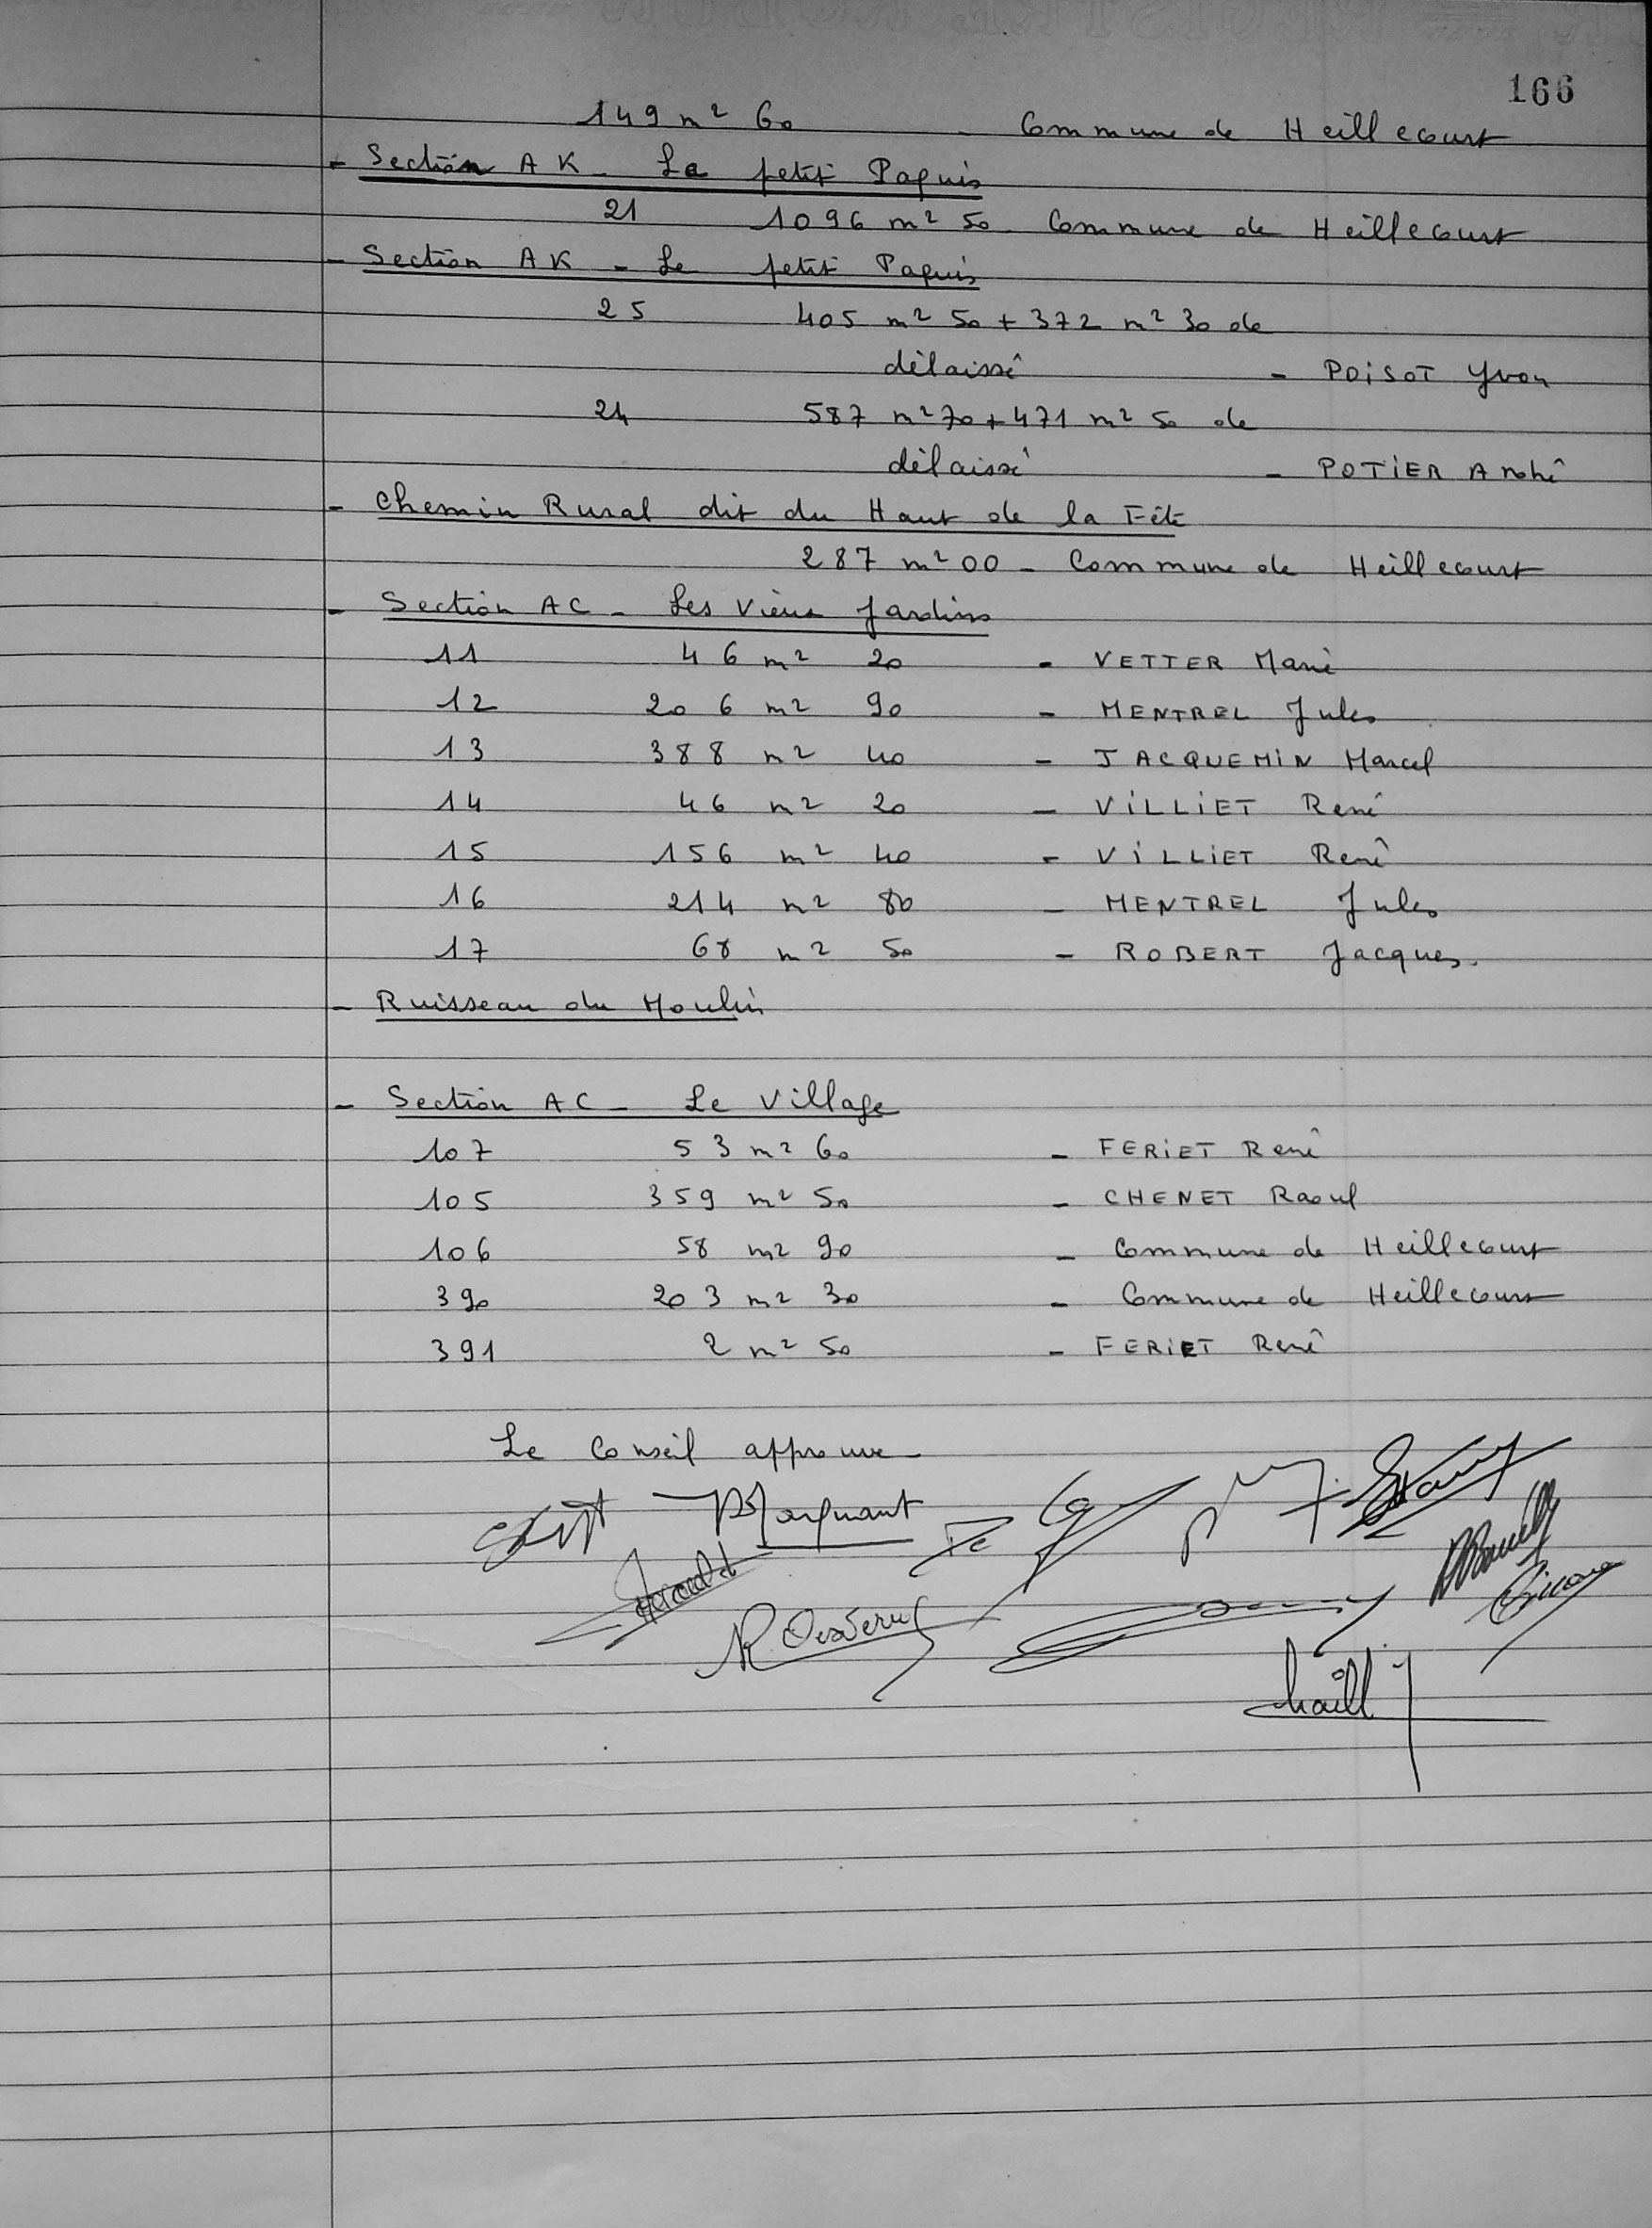 166
149 m² 60 - Commune de Heillecourt
- Section AK - Le petit Paquis
21 1096 m² 50 - Commune de Heillecourt
- Section AK - Le petit Paquis
25 405 m² 50 + 372 m² 30 de
délaissé - POISOT Yvon
24 587 m² 70 + 471 m² 50 de
délaissé - POTIER André
- Chemin Rural dit du Haut de la Fête
287 m² 00 - Commune de Heillecourt
- Section AC - Les Vieux Jardins
11 46 m² 20 - VETTER Marie
12 206 m² 90 - MENTREL Jules
13 388 m² 40 - JACQUEMIN Marcel
14 46 m² 20 - VILLIET René
15 156 m² 40 - VILLIET René
16 214 m² 80 - MENTREL Jules
17 68 m² 50 - ROBERT Jacques.
- Ruisseau du Moulin
- Section AC - Le Village
107 53 m² 60 - FERIET René
105 359 m² 50 - CHENET Raoul
106 58 m² 90 - Commune de Heillecourt
390 203 m² 30 - Commune de Heillecourt
391 2 m² 50 - FERIET René
Le Conseil approuve